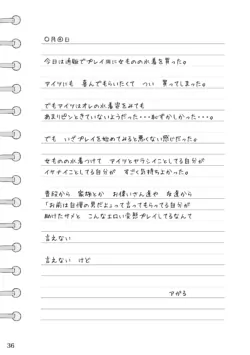 〇月④日
今日は通販でプレイ用に女ものの水着を買った。
アイツにも 喜んでもらいたくて つい 買ってしまった。
でもアイツはオレの水着姿をみても
あまりピンときていないようだった・・・恥ずかしかった・・・。
でも いざプレイを始めてみると悪くない感じだった。
女ものの水着つけて アイツとヤラシイことしてる自分が
イケナイことしてる自分が すごく気持ちよかった。
普段から 家族とか お偉いさん達や 友達から
「お前は自慢の男だよ」って言ってもらってる自分が
助けたサメと こんなエロい変態プレイしてるなんて
言えない
言えない けど
アガる
36